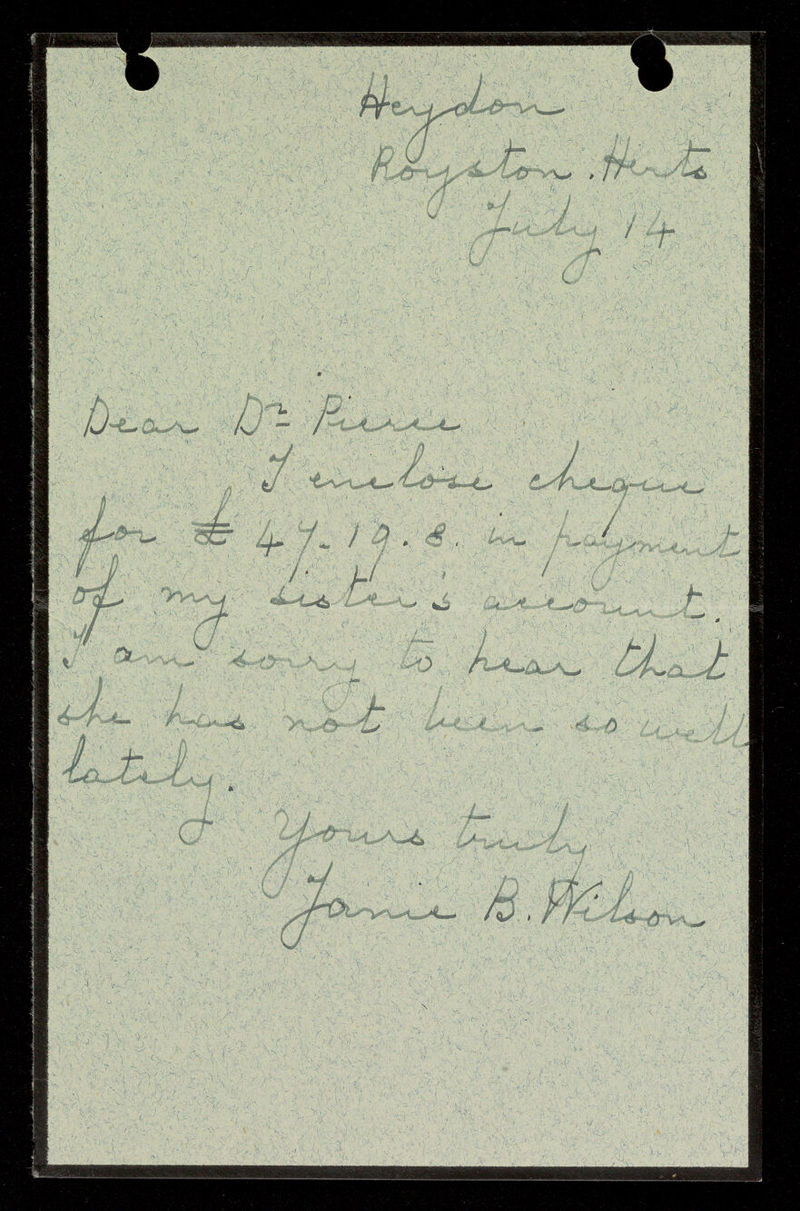 Heydon
Royston. Herts
July 14
Dear Dr Pierce
I enclose cheque
for £47.19.8. in payment
of my sister's account.
I am sorry to hear that
she has not been so well
lately.
Yours truly
Janie B. Wilson